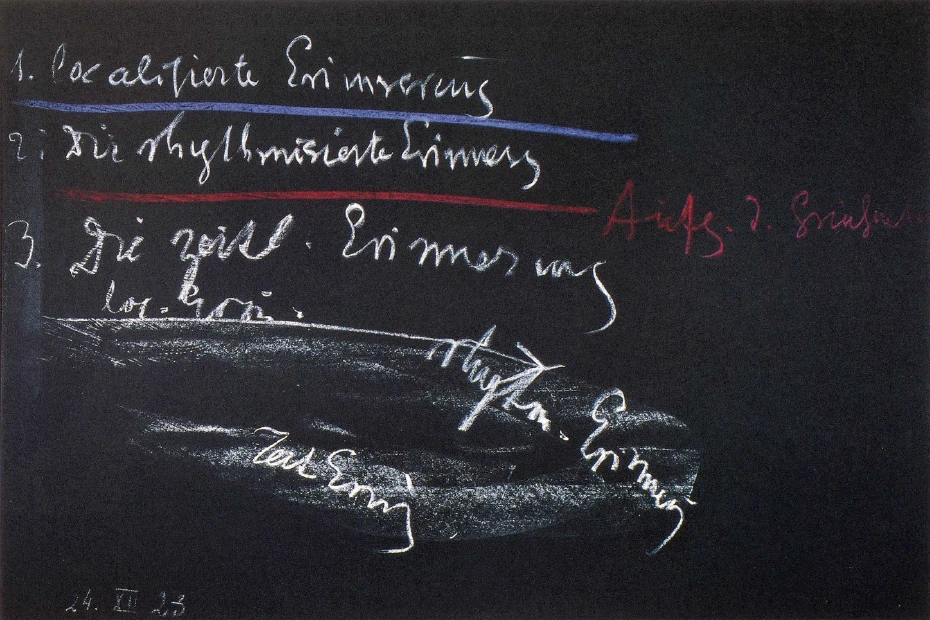 1. localisierte Erinnerung
2. Die rhythmisierte Erinnerg
3. Die zeitl. Erinnerung
Aufg. d. Griechent
loc. Erin.
rhythm. Erinner
Zeit Erin
24. XII 23